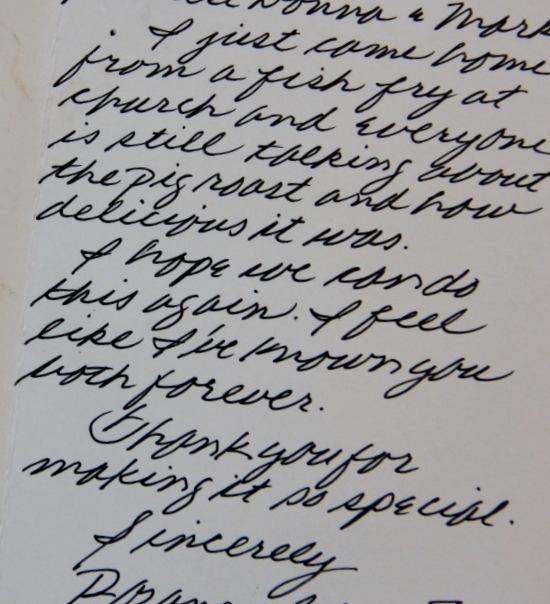 Donna & Mark
I just came home
from a fish fry at
church and everyone
is still talking about
the pig roast and how
delicious it was.
I hope we can do
this again. I feel
like I've known you
both forever.
Thank you for
making it so special.
Sincerely